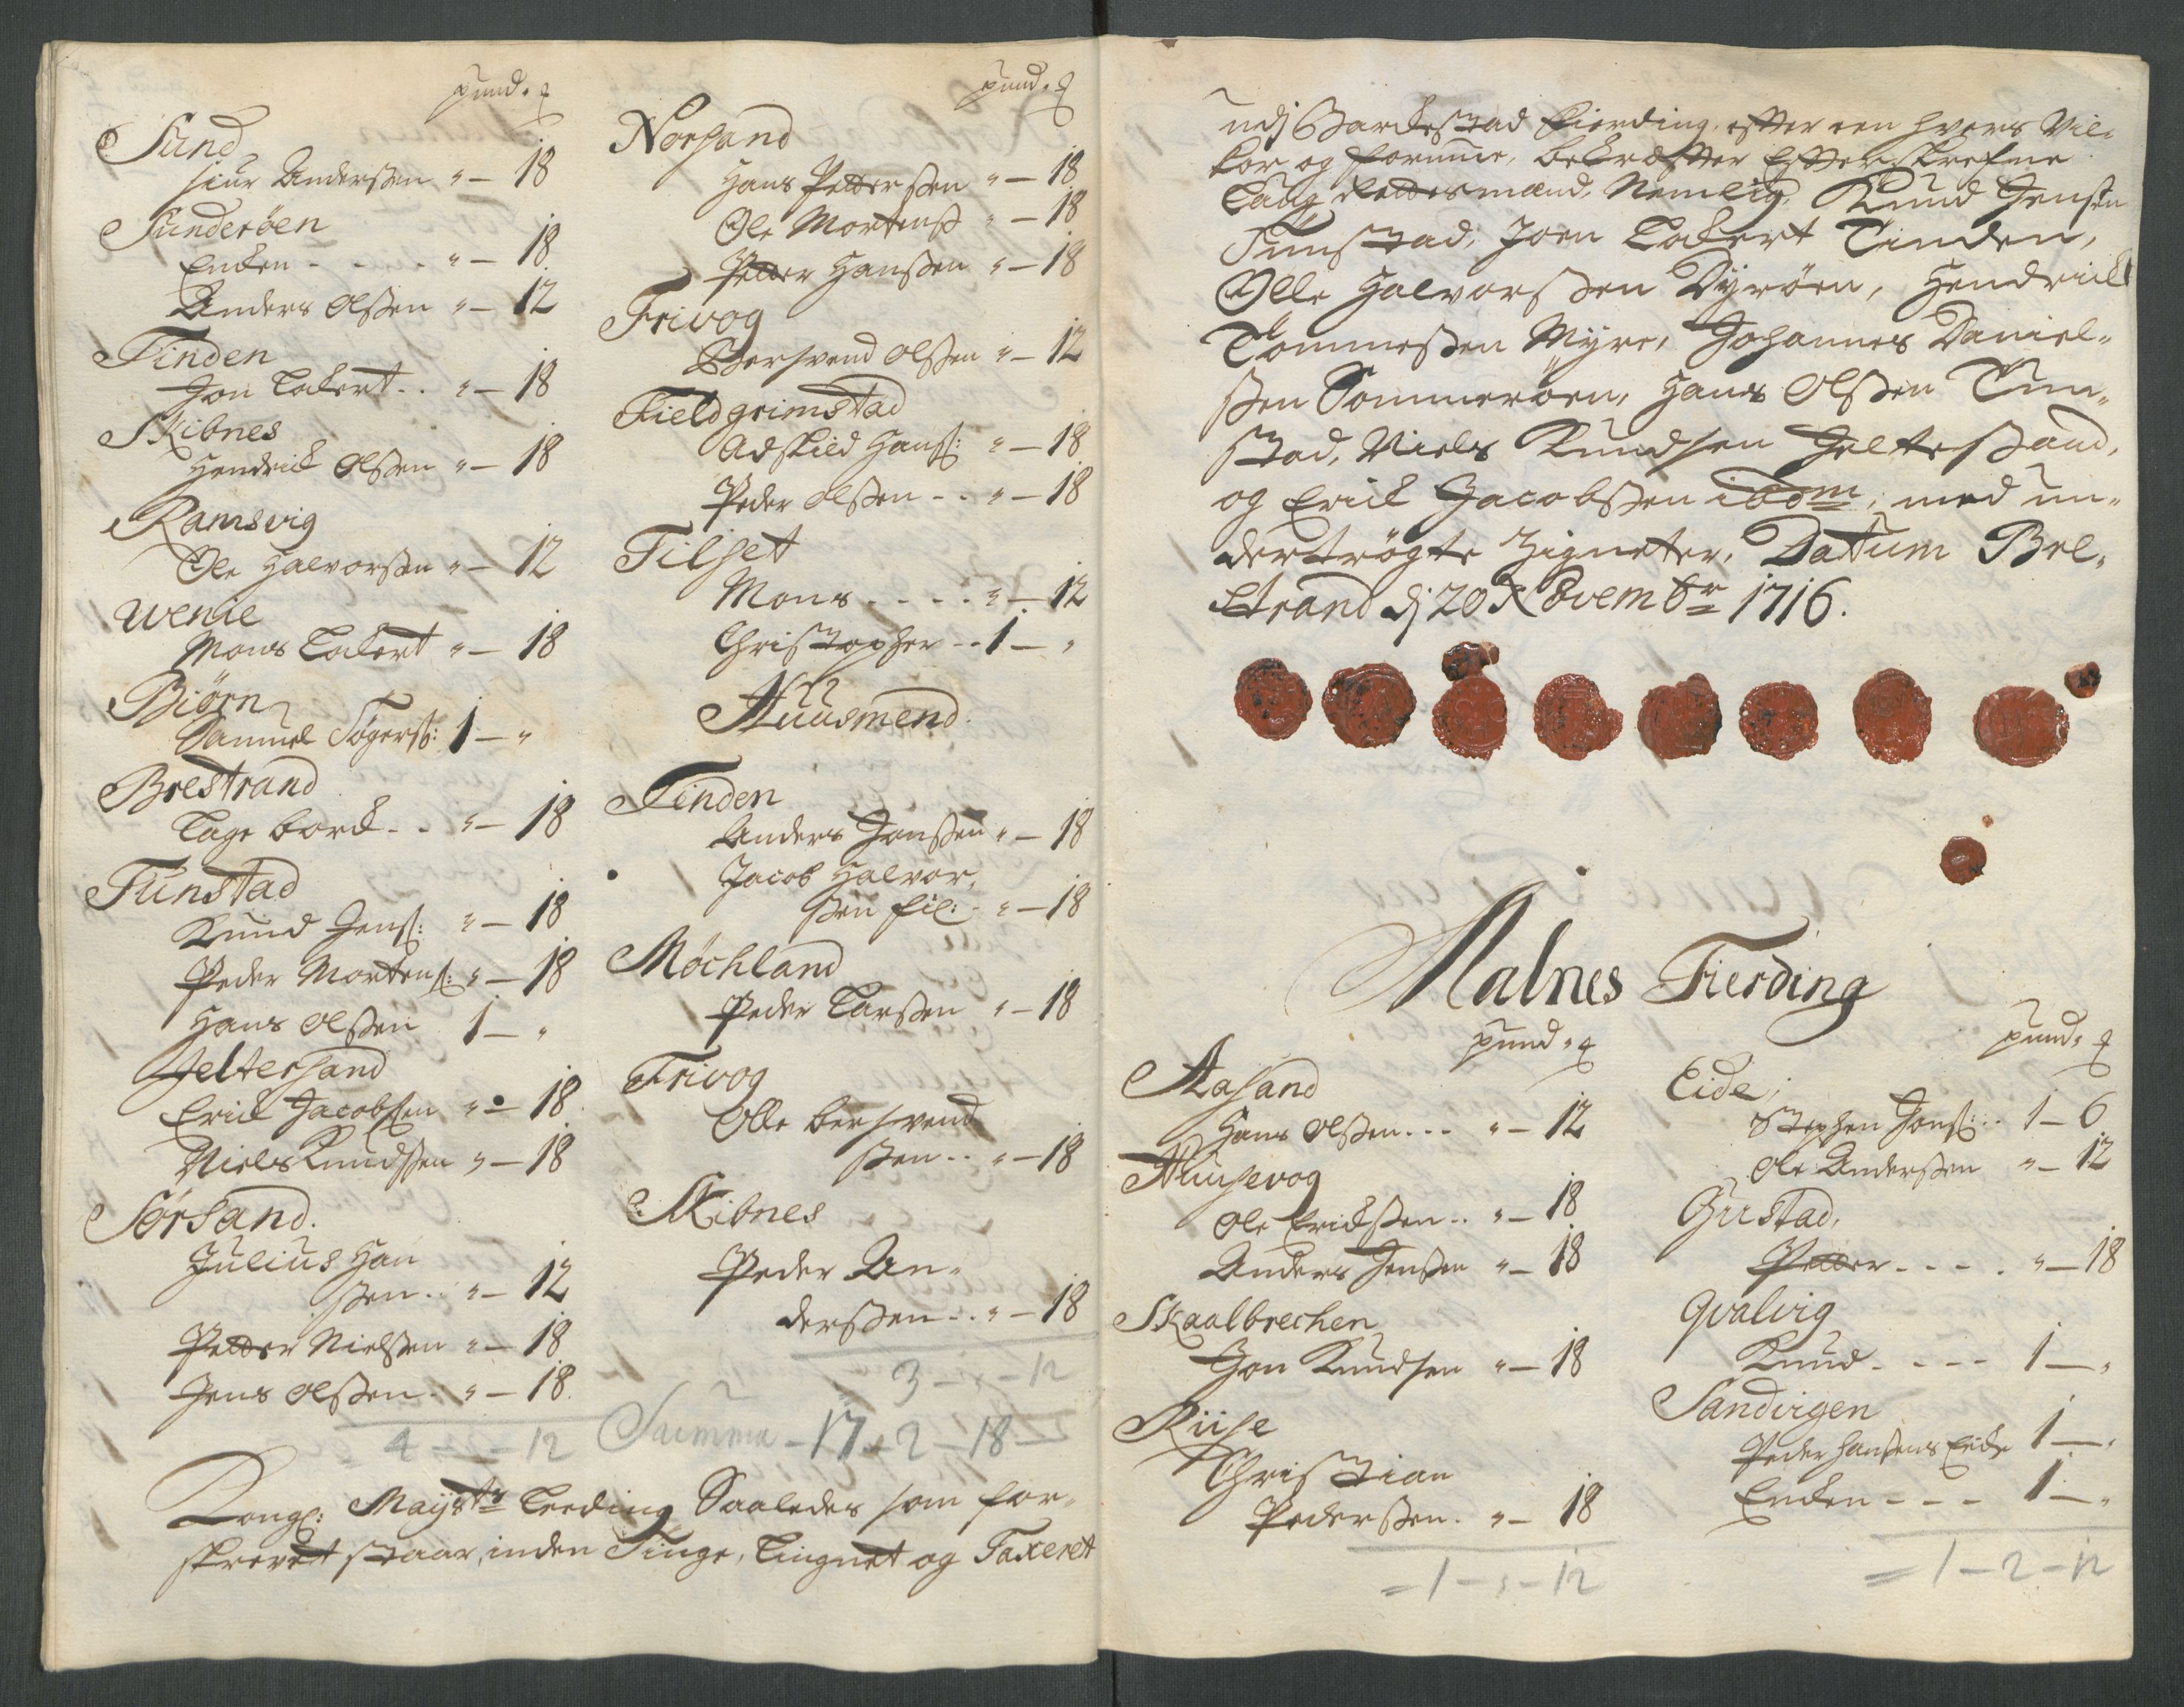 pund. ꝗ
Sund
Siur Andersen " – 18
Sunderøen
Encken - - - - " – 18
Anders Olssen " – 12
Tinden
Jon Lakert . . " – 18
Skibnes
Hendrick Olssen " – 18
Ramsvig
Ole Halvorssen " – 12
Wenie
Mons Lakert " – 18
Biørn
Samuel Tøgers: 1 – "
Brestrand
Tage borck - . " – 18
Tunstad
Knud Jens: " – 18
Peder Mortens: " – 18
Hans Olssen 1 – "
Jeltersand
Erick Jacobssen " – 18
Niels Knudssen " – 18
Sørsand.
Julius Han
ssen . . " – 12
Petter Nielssen " – 18
Jens Olssen . " – 18.
4 – " – 12
pund. ꝗ
Norsand
Hans Petterssen " – 18
Ole Mortenss " – 18
Petter Hanssen " – 18
Frivog
Bersvend Olssen " – 12
Fieldgrimstad
Adskild Hans: " – 18
Peder Olssen - . " – 18
Tilset
Mons . - - - . " – 12
Christopher - - 1 – "
Huusmend.
Tinden
Anders Jonssen " – 18
Jacob Halvor,
ssen fil: . " – 18
Møchland
Peder Larssen " – 18
Frivog
Olle Bersvend
ssen . . " – 18
Skibnes
Peder An-
derssen . . " – 18
3 – " – 12
Summa – 17 – 2 – 18 –
Kongl: Mayts Leeding Saaledes som for-
skrevet staar, inden Tinge, Lingnet og Taxeret
udj Barkestad Fierding, efter een hvers Vil-
kor og formue, bekræfter Efterskrefne
Laug Rettesmænd, Nemlig, Knud Jenssen
Tunstad, Joen Lakert Tinden,
Olle Halvorssen Dyrøen, Hendrick
Tommessen Myre, Johannes Daniel-
ssen Sommerøen, Hans Olssen Tun-
stad, Niels Knudsen Jeltesand,
og Erick Jacobssen ibdm, med un-
dertrøgte Zigneter, Datum Bre-
strand dj 20 Novembr 1716.
Malnes Fierding
pund. ꝗ
Aasand
Hans Olssen . . . " – 12
Huusevog
Ole Erickssen . . " – 18
Anders Jenssen " – 18
Skaalbrechen
Jon Knudsen " – 18
Riise
Christian
Pederssen . " – 18
= 1 – " – 12
pund. ꝗ
Eide,
Stephen Jons: . . 1 – 6
Ole Anderssen " – 12
Gustad,
Petter - - - . " – 18
Qvalvig
Knud - - - - 1 – "
Sandvigen
Peder Hansens Encke 1 – "
Encken - - - 1 – "
= 1 – 2 – 12